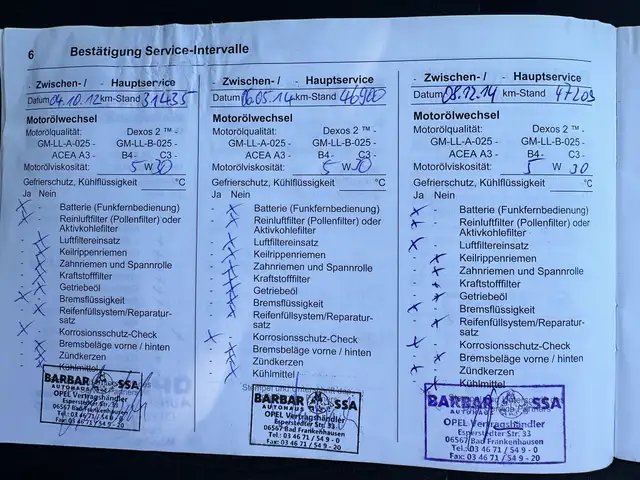 6 Bestätigung Service-Intervalle
- Zwischen- / - Hauptservice
Datum 04.10.12 km-Stand 31435
Motorölwechsel
Motorölqualität: Dexos 2 ™ -
GM-LL-A-025 - GM-LL-B-025 -
ACEA A3 - B4 - C3 -
Motorölviskosität: 5 W 30
Gefrierschutz, Kühlflüssigkeit °C
Ja Nein
- - Batterie (Funkfernbedienung)
- - Reinluftfilter (Pollenfilter) oder
Aktivkohlefilter
- - Luftfiltereinsatz
- - Keilrippenriemen
- - Zahnriemen und Spannrolle
- - Kraftstofffilter
- - Getriebeöl
- - Bremsflüssigkeit
- - Reifenfüllsystem/Reparatur-
satz
- - Korrosionsschutz-Check
- - Bremsbeläge vorne / hinten
- - Zündkerzen
- - Kühlmittel
BARBAROSSA
AUTOHAUS
OPEL Vertragshändler
Esperstedter Str. 33
06567 Bad Frankenhausen
Tel.: 03 46 71 / 54 9 - 0
Fax: 03 46 71 / 54 9 - 20
- Zwischen- / - Hauptservice
Datum 06.05.14 km-Stand 46900
Motorölwechsel
Motorölqualität: Dexos 2 ™ -
GM-LL-A-025 - GM-LL-B-025 -
ACEA A3 - B4 - C3 -
Motorölviskosität: 5 W 30
Gefrierschutz, Kühlflüssigkeit °C
Ja Nein
- - Batterie (Funkfernbedienung)
- - Reinluftfilter (Pollenfilter) oder
Aktivkohlefilter
- - Luftfiltereinsatz
- - Keilrippenriemen
- - Zahnriemen und Spannrolle
- - Kraftstofffilter
- - Getriebeöl
- - Bremsflüssigkeit
- - Reifenfüllsystem/Reparatur-
satz
- - Korrosionsschutz-Check
- - Bremsbeläge vorne / hinten
- - Zündkerzen
- - Kühlmittel
Stempel und
BARBAROSSA
AUTOHAUS
OPEL Vertragshändler
Esperstedter Str. 33
06567 Bad Frankenhausen
Tel.: 03 46 71 / 54 9 - 0
Fax: 03 46 71 / 54 9 - 20
- Zwischen- / - Hauptservice
Datum 08.12.14 km-Stand 47209
Motorölwechsel
Motorölqualität: Dexos 2 ™ -
GM-LL-A-025 - GM-LL-B-025 -
ACEA A3 - B4 - C3 -
Motorölviskosität: 5 W 30
Gefrierschutz, Kühlflüssigkeit °C
Ja Nein
- - Batterie (Funkfernbedienung)
- - Reinluftfilter (Pollenfilter) oder
Aktivkohlefilter
- - Luftfiltereinsatz
- - Keilrippenriemen
- - Zahnriemen und Spannrolle
- - Kraftstofffilter
- - Getriebeöl
- - Bremsflüssigkeit
- - Reifenfüllsystem/Reparatur-
satz
- - Korrosionsschutz-Check
- - Bremsbeläge vorne / hinten
- - Zündkerzen
- - Kühlmittel
BARBAROSSA
AUTOHAUS
OPEL Vertragshändler
Esperstedter Str. 33
06567 Bad Frankenhausen
Tel.: 03 46 71 / 54 9 - 0
Fax: 03 46 71 / 54 9 - 20